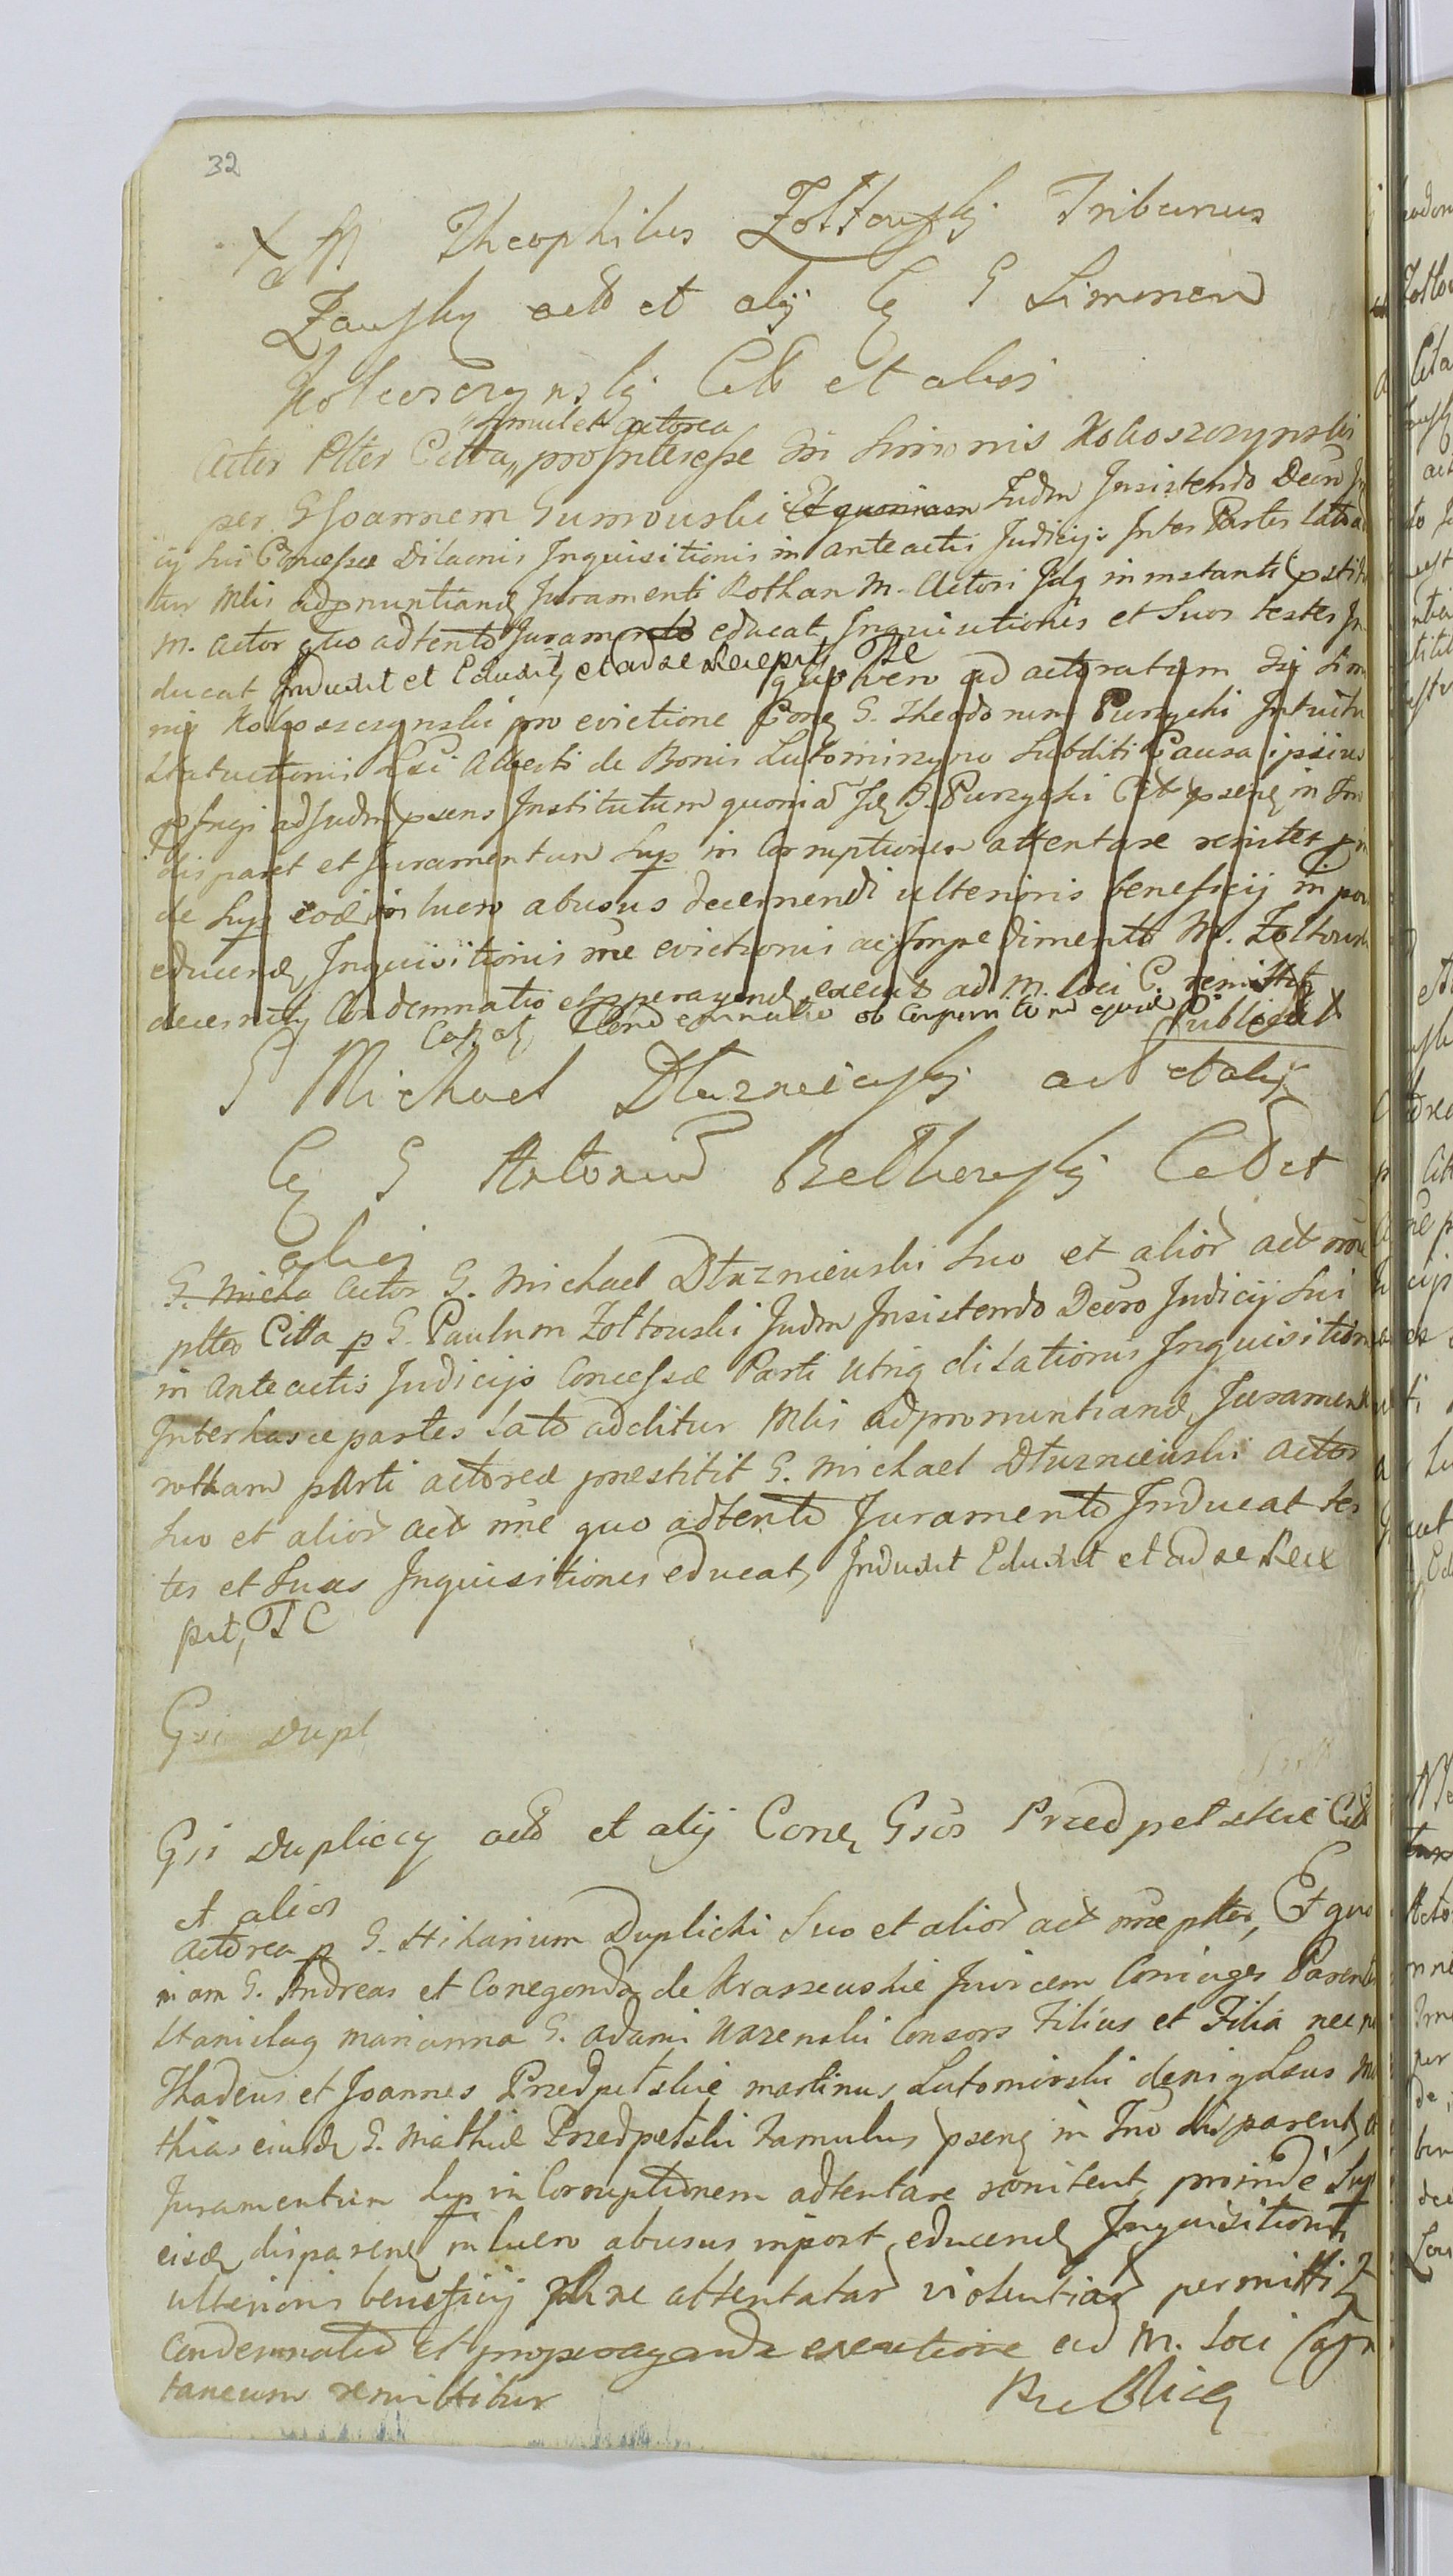 32
M Theophilus Zołtowskj Tribunus
act et alij G Simonem
Kokoszczynskj Citt et alios
simul et actorea
Actor Pltter Citta,, pro Interesse Gsi Simonis Kokoszczynski
per G Joannem Gumowski Et quoniam Judm Insistendo Decro
ij sui Concessae Dilaonis Inquisitionis in anteactis Judicijs Inter Partes lato
tur Mlis adpnuntiand Juramenti Rotham M. Actori in instanti pstit
M. actor quo adtento Juramento educat Inquisitionis et Suos testes In
ducat Induxit et Eduxit, et ad se Recepit, Tse
quo vero ad actoratum Gsi Sim
nis Kokoszczynski pro evictione Cone G. Theodorum Purzycki Intuitu
Statuitionis Alberti de Bonis Lutomirzyno Subditi Causa ipsius
profugi ad Judm psens Institutum quonia G. Purzycki Citt psens in Trno
disparet et Juramentum Sup in Corruptionem attentare renitet
de Sup eod in luero abusus decernendi ulterioris beneficij in por
educend, Inquisitionis rne evictionis ac Impedimento M. Zołtowsk
decernit, Condemnatio et properagend, execut ad M. loci C. remittit
Publicat
G Michael Dłuzniewskj act et alij
G G Antonium Cit et
alios
G. Micha Actor G. Michael Dłuzniewski Suo et alior act rne
pltter Citta p G. Paulum Zołtowski Judm Insistendo Decro Judicij Sui
in Anteactis Judicijs Concessae Parti Utriq dilationis Inquisition
Inter hasce partes lato additur Mlis adpronuntiand, Jurament
rotham parti actoreae praestitit G. Michael Dłuzniewski actor
Suo et alior act rne quo adtento Juramento Inducat tes
tes et Suas Inquisitiones educat, Induxit Eduxit et ad se Rece
pit, TC
Gsi Dupl
Gsi Dupliccy act et alij Cone Gsos Przedpełskie Citt
et alios
Actorea p G. Hilarium Duplicki Suo et alior act rne pltter, Et quo
niam G. Andreas et Conegonda de Kraszewskie Invicem Coniuges Parent
Stanislag Marianna G. Adami Consors Filius et Filia nec n
Thadeus et Joannes Przedpełskie Martinus Lutomirski deniq Lsus Ma
thias eiusd G. Mathiae Przedpełski Famulus pseng in Trno disparent, et
Juramentum Sup in Corruptionem adtentare renitent, proinde Sup
eisd disparend in luero abusus in port educend Inquisitionis
ulterioris beneficij attentatar violentiar permittit
Condemnatio et properaganda executione ad M. loci Cap
taneum remittitur
Publica